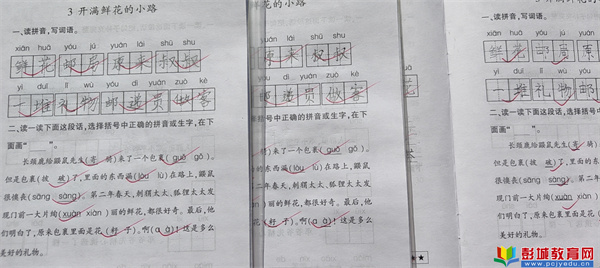 3 开满鲜花的小路
一、读拼音,写词语。
xiān huā yóu jú yuán lái shū shu
鲜花 邮局 原来 叔叔
yì duī lǐ wù yóu dì yuán zuò kè
一堆 礼物 邮递员 做客
二、读一读下面这段话,选择括号中正确的拼音或生字,在下
面画“____”。
长颈鹿给鼹鼠先生(寄 )来了一个包裹(guǒ gǒ)。
但是包裹(披 破)了,里面的东西漏(lòu lù)在路上,鼹鼠
很懊丧(sāng sàng)。第二年春天,刺猬太太、狐狸太太发
现门前一大片绚(xuàn xiàn)丽的鲜花,都很好奇。最后,他
们明白了,原来包裹里面是花(籽 子)。啊(a à)!这是多么
美好的礼物。
花的小路
yuán lái shū shu
原来 叔叔
yóu dì yuán zuò kè
邮递员 做客
选择括号中正确的拼音或生字,在下
)来了一个包裹(guǒ gǒ)。
的东西漏(lòu lù)在路上,鼹鼠
第二年春天,刺猬太太、狐狸太太发
)丽的鲜花,都很好奇。最后,他
花(籽 子)。啊(a à)!这是多么
一、读拼音,写词语。
xiān huā yóu jú yuán
鲜花 邮局 原
yì duī lǐ wù yóu
一堆 礼物 邮
二、读一读下面这段话,选择
面画“____”。
长颈鹿给鼹鼠先生
但是包裹(披 破)了,里
很懊丧(sāng sàng)
现门前一大片绚(xuàn
们明白了,原来包裹
美好的礼物。
彭城教育网
www.pcjyedu.cn